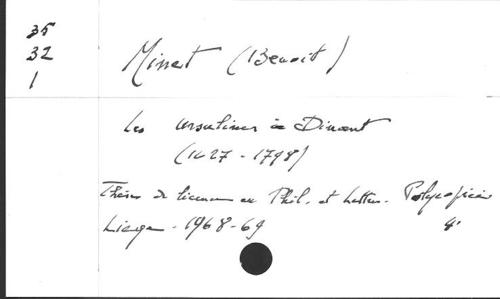 35
32
1
Minet (Benoit)
Les Ursulines à Dinant
(1627 - 1798)
Thèse de licence en Phil. et Lettres. Polycopiée
Liège - 1968-69 4°